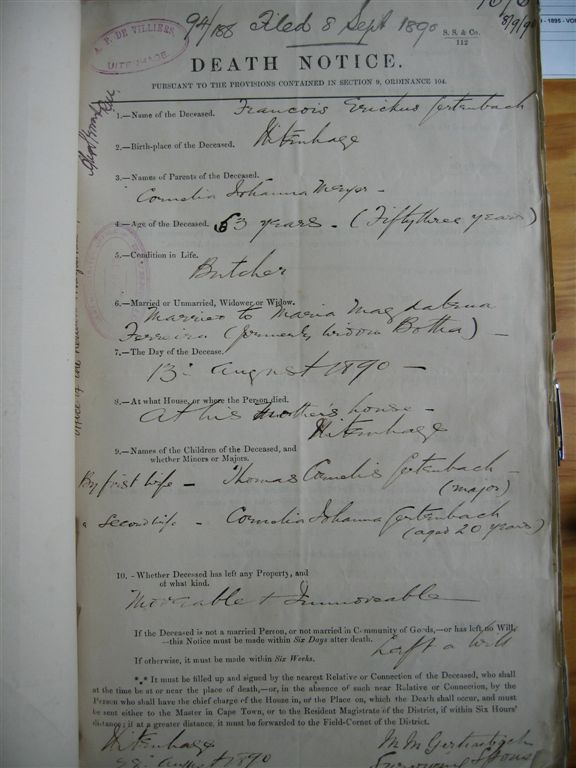 94/188 Filed 8 Sept 1890
A. F. DE VILLIERS.
UITENHAGE.
8/9/90
S. S. & Co.
112
DEATH NOTICE.
PURSUANT TO THE PROVISIONS CONTAINED IN SECTION 9, ORDINANCE 104.
1.—Name of the Deceased. Francois Erickus Gertenbach
2.—Birth-place of the Deceased. Uitenhage
3.—Names of Parents of the Deceased.
Cornelia Johanna Meyer -
4.—Age of the Deceased. 53 years - (Fiftythree years)
5.—Condition in Life.
Butcher
6.—Married or Unmarried, Widower or Widow.
Married to Maria Magdalena
Ferreira (formerly widow Botha) -
7.—The Day of the Decease.
13 August 1890 -
8.—At what House, or where the Person died.
At his mother's house -
Uitenhage
9.—Names of the Children of the Deceased, and
whether Minors or Majors.
By first wife - Thomas Cornelis Gertenbach -
(major)
" Second wife - Cornelia Johanna Gertenbach
(aged 20 years)
10. - Whether Deceased has left any Property, and
of what kind.
Moveable + Immoveable
If the Deceased is not a married Person, or not married in Community of Goods,—or has left no Will,
—this Notice must be made within Six Days after death.
Left a will
If otherwise, it must be made within Six Weeks.
*** It must be filled up and signed by the nearest Relative or Connection of the Deceased, who shall
at the time be at or near the place of death,—or, in the absence of such near Relative or Connection, by the
Person who shall have the chief charge of the House in, or the Place on, which the Death shall occur, and must
be sent either to the Master in Cape Town, or to the Resident Magistrate of the District, if within Six Hours'
distance; if at a greater distance, it must be forwarded to the Field-Cornet of the District.
Uitenhage
August 1890
M M Gertenbach
Surviving Spouse